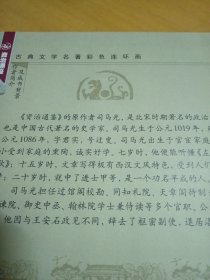 古典文学名著彩色连环画
及成书背景
作者简介
《资治通鉴》的原作者司马光，是北宋时期著名的政治
也是中国古代著名的史学家。司马光生于公元1019年，
公元1086年，字君实，号过叟，司马光出生于官宦家庭
小受到家庭的熏陶，诚实好学，七岁时，他便能听懂《左
》；十五岁时，文章写得极有西汉文风特色，受到人们
。二十岁时，就中了进士甲等，是一个功名早就的人。
司马光担任过馆阁校勘、同知礼院、天章阁待制
谏院、御史中丞、翰林院学士兼侍读等多个官职。公
他因与王安石政见不同，辞去了枢密副使，退居洛